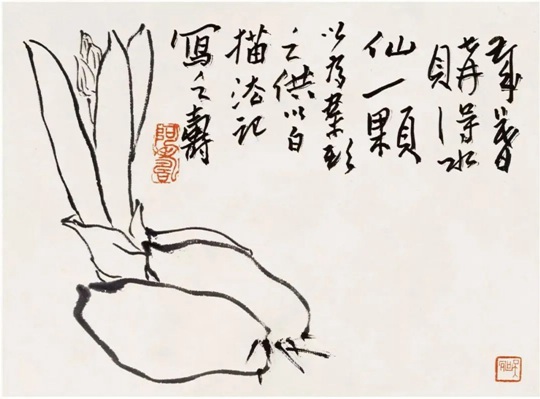 歲暮
購得水
仙一顆
以為案頭
之供以白
描法記
寫之壽